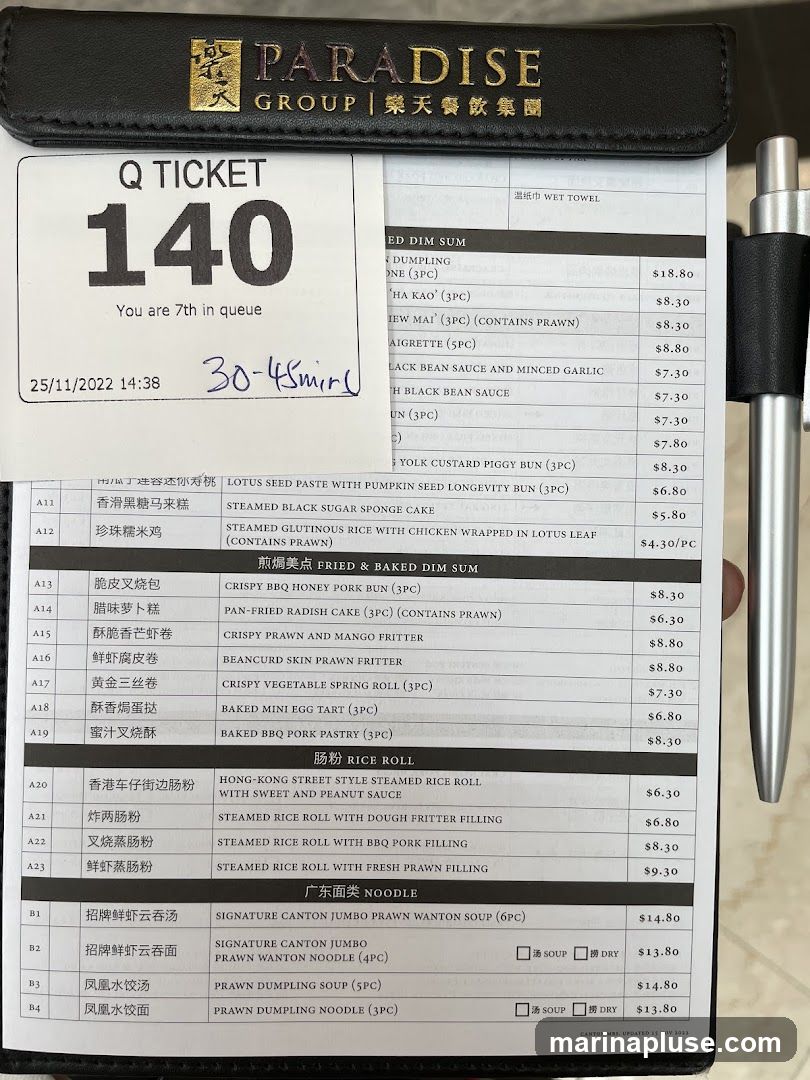 樂天
PARADISE
GROUP | 樂天餐飲集團
Q TICKET
140
You are 7th in queue
25/11/2022 14:38
30-45mins
温纸巾 WET TOWEL
ED DIM SUM
N DUMPLING
ONE (3PC) $18.80
'HA KAO' (3PC) $8.30
IEW MAI' (3PC) (CONTAINS PRAWN) $8.30
AIGRETTE (5PC) $8.80
LACK BEAN SAUCE AND MINCED GARLIC $7.30
H BLACK BEAN SAUCE $7.30
UN (3PC) $7.30
C) $7.80
G YOLK CUSTARD PIGGY BUN (3PC) $8.30
南瓜子莲蓉迷你寿桃 LOTUS SEED PASTE WITH PUMPKIN SEED LONGEVITY BUN (3PC) $6.80
A11 香滑黑糖马来糕 STEAMED BLACK SUGAR SPONGE CAKE $5.80
A12 珍珠糯米鸡 STEAMED GLUTINOUS RICE WITH CHICKEN WRAPPED IN LOTUS LEAF
(CONTAINS PRAWN) $4.30/PC
煎焗美点 FRIED & BAKED DIM SUM
A13 脆皮叉烧包 CRISPY BBQ HONEY PORK BUN (3PC) $8.30
A14 腊味萝卜糕 PAN-FRIED RADISH CAKE (3PC) (CONTAINS PRAWN) $6.30
A15 酥脆香芒虾卷 CRISPY PRAWN AND MANGO FRITTER $8.80
A16 鲜虾腐皮卷 BEANCURD SKIN PRAWN FRITTER $8.80
A17 黄金三丝卷 CRISPY VEGETABLE SPRING ROLL (3PC) $7.30
A18 酥香焗蛋挞 BAKED MINI EGG TART (3PC) $6.80
A19 蜜汁叉烧酥 BAKED BBQ PORK PASTRY (3PC) $8.30
肠粉 RICE ROLL
A20 香港车仔街边肠粉 HONG-KONG STREET STYLE STEAMED RICE ROLL
WITH SWEET AND PEANUT SAUCE $6.30
A21 炸两肠粉 STEAMED RICE ROLL WITH DOUGH FRITTER FILLING $6.80
A22 叉烧蒸肠粉 STEAMED RICE ROLL WITH BBQ PORK FILLING $8.30
A23 鲜虾蒸肠粉 STEAMED RICE ROLL WITH FRESH PRAWN FILLING $9.30
广东面类 NOODLE
B1 招牌鲜虾云吞汤 SIGNATURE CANTON JUMBO PRAWN WANTON SOUP (6PC) $14.80
B2 招牌鲜虾云吞面 SIGNATURE CANTON JUMBO
PRAWN WANTON NOODLE (4PC) 汤 SOUP 捞 DRY $13.80
B3 凤凰水饺汤 PRAWN DUMPLING SOUP (5PC) $14.80
B4 凤凰水饺面 PRAWN DUMPLING NOODLE (3PC) 汤 SOUP 捞 DRY $13.80
marinapluse.com